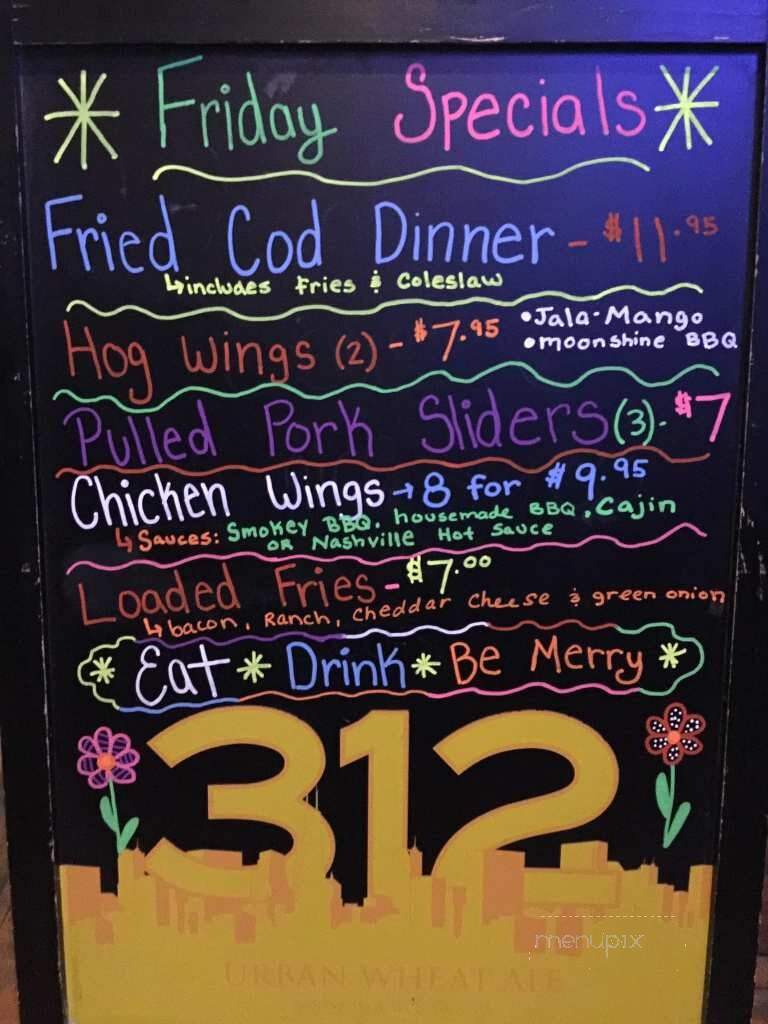 Friday Specials
Fried Cod Dinner - $11.95
↳includes Fries & Coleslaw
Hog Wings (2) - $7.95 •Jala-Mango
•moonshine BBQ
Pulled Pork Sliders (3)- $7
Chicken Wings → 8 for $9.95
↳Sauces: Smokey BBQ, housemade BBQ, Cajin
OR Nashville Hot Sauce
Loaded Fries - $7.00
↳bacon, Ranch, Cheddar Cheese & green onion
Eat * Drink * Be Merry
312
menupix
URBAN WHEAT ALE